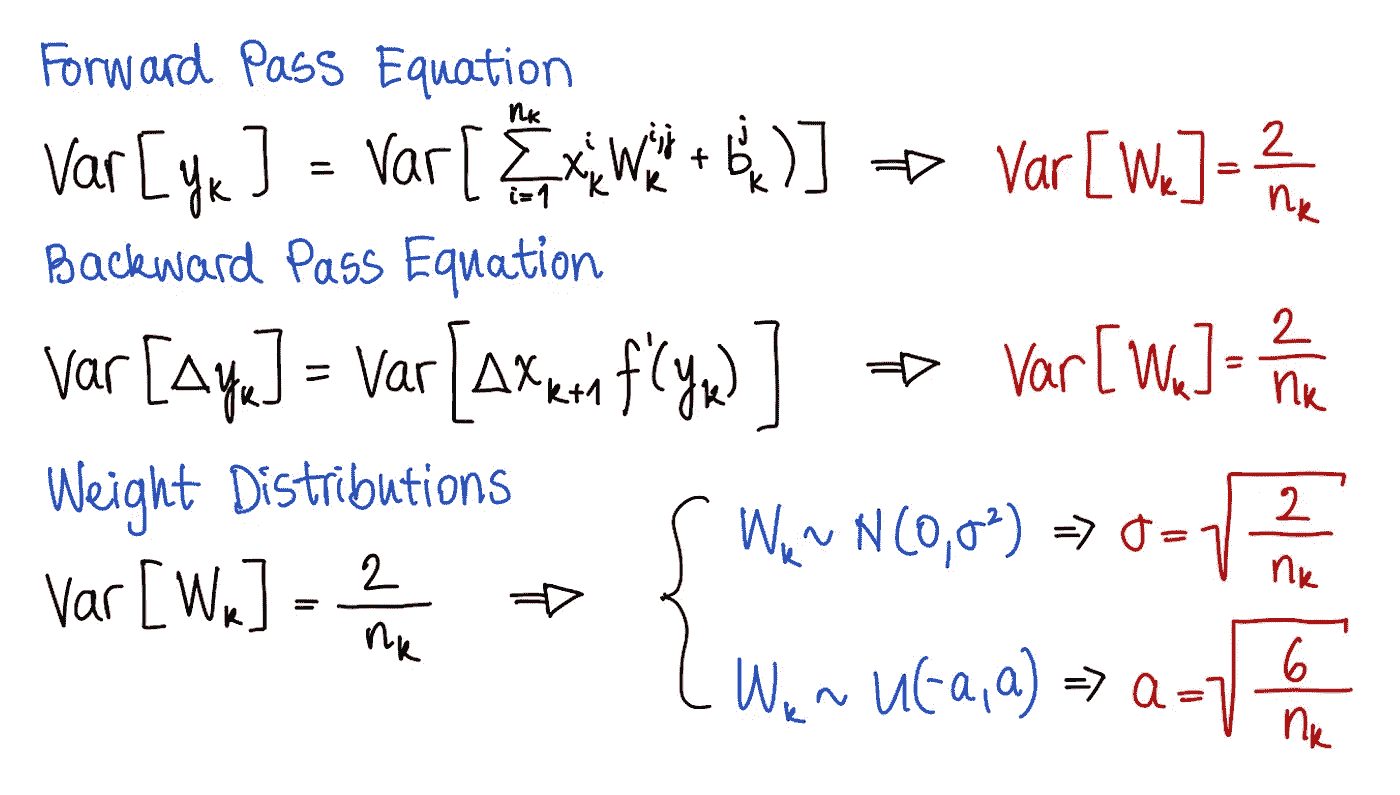 Forward Pass Equation
Var[y_k] = Var[∑_{i=1}^{n_k} x_k^i W_k^{i,j} + b_k^j)] ⇒ Var[W_k] = 2/n_k
Backward Pass Equation
Var[Δy_k] = Var[Δx_{k+1} f'(y_k)] ⇒ Var[W_k] = 2/n_k
Weight Distributions
Var[W_k] = 2/n_k ⇒ {
W_k ~ N(0,σ²) ⇒ σ = √(2/n_k)
W_k ~ U(-a,a) ⇒ a = √(6/n_k)